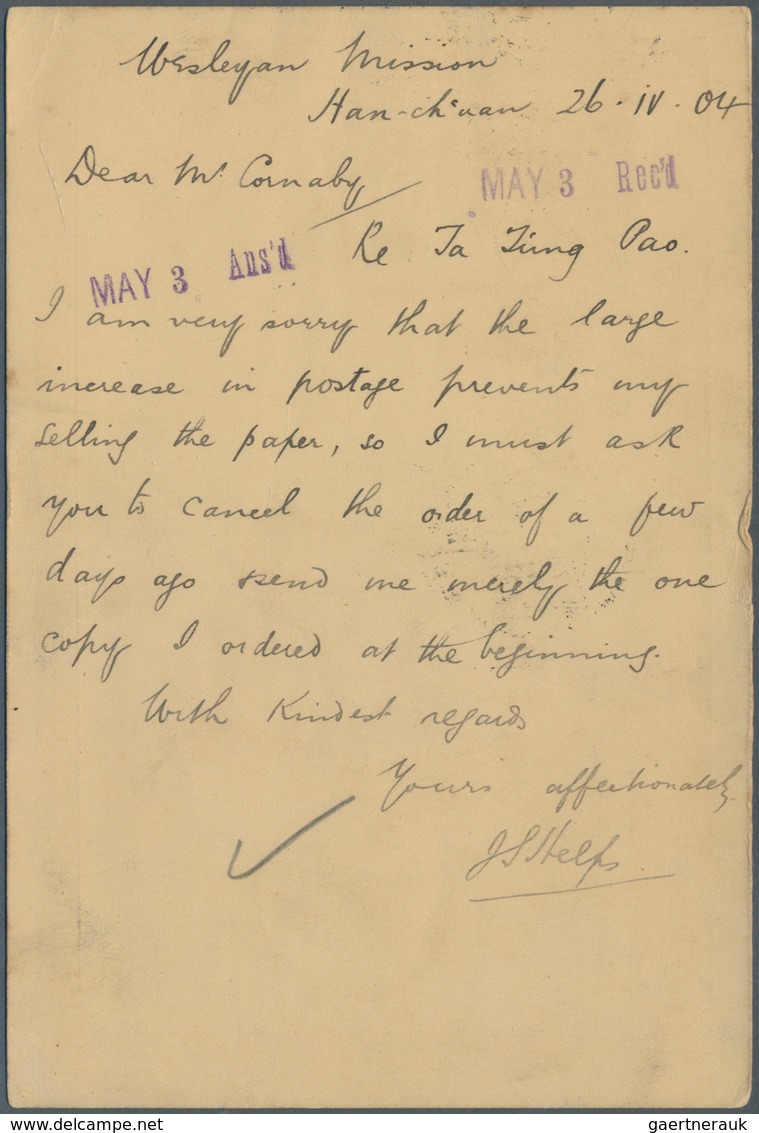 Wesleyan Mission
Han-ch'uan 26.IV.04
Dear Mr Cornaby
MAY 3 Rec'd
Re Ta Tung Pao.
MAY 3 Ans'd
I am very sorry that the large
increase in postage prevents my
selling the paper, so I must ask
you to cancel the order of a few
days ago & send me merely the one
copy I ordered at the beginning.
With Kindest regards
Yours affectionately
J S Helps
gaertnerauk